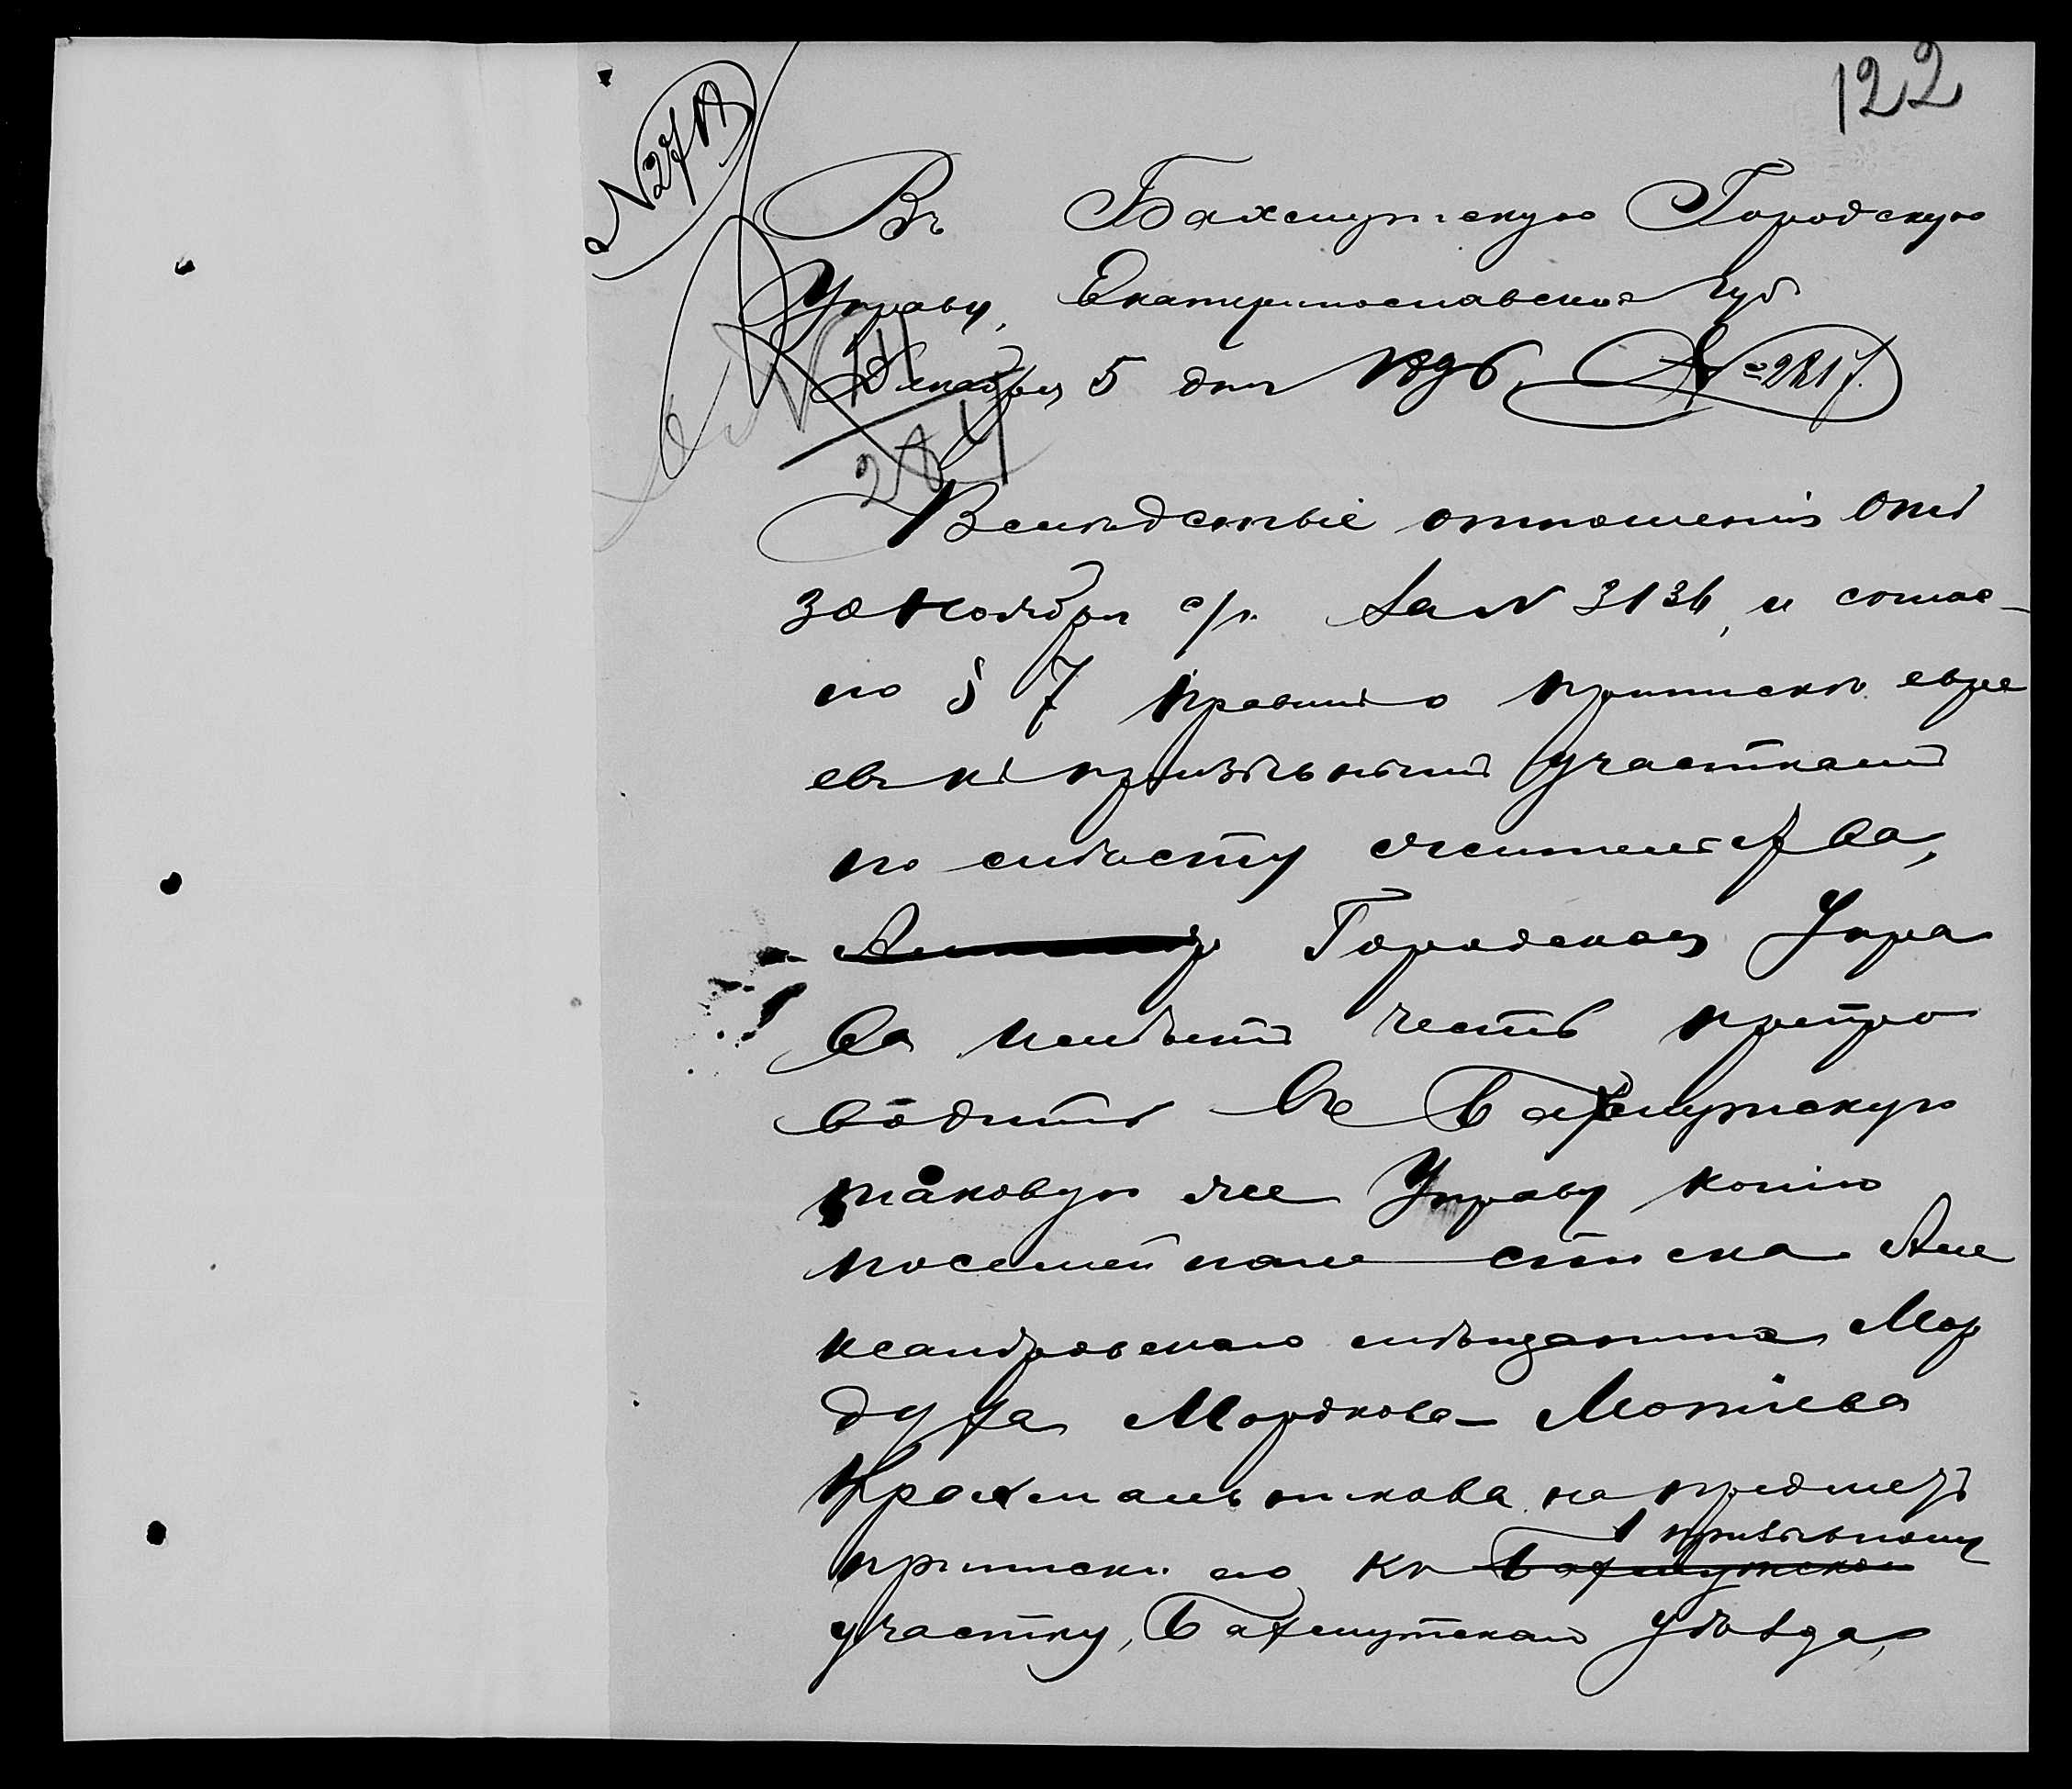 122
Въ Бахмутскую Городскую
Управу, Екатеринославской губ
Декабря 5 дня №2817.
Вслѣдствіе отношенія отъ
30 Ноября с/г. За № 3136, и соглас-
но § 7 правилъ о припискѣ евре
евъ къ призывнымъ участкамъ
по мѣсту жительства,
Городская Упра
ва имѣетъ честь препро
водить въ Бахмутскую
таковую же Управу копію
посемейнаго списка Але
ксандровскаго мѣщанина Мор
духа Мордкова-Мотіева
Крахмальникова на предметъ
приписки его къ Бахмутском 1 призывному
участку, Бахмутскаго уѣзда,